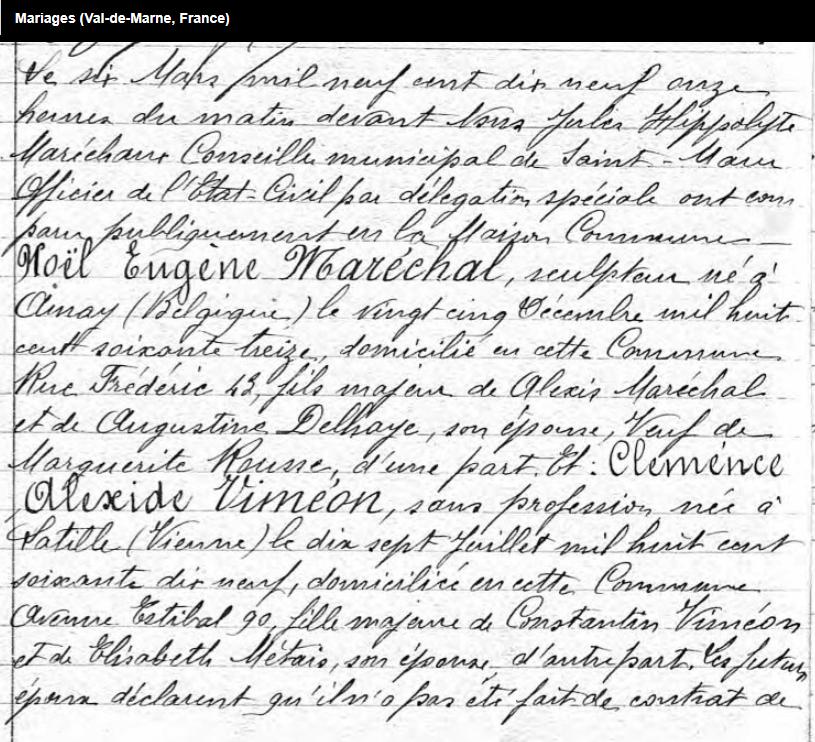 Mariages (Val-de-Marne, France)
Le six Mars mil neuf cent dix neuf onze
heures du matin devant Nous Jules Hippolyte
Maréchaux Conseiller municipal de Saint-Maur
Officier de l'Etat-Civil par délégation spéciale ont com
paru publiquement en la Maison Commune
Noël Eugène Maréchal, sculpteur né à
Amay (Belgique) le vingt cinq Décembre mil huit
cent soixante treize, domicilié en cette Commune
Rue Frédéric 43, fils majeur de Alexis Maréchal
et de Augustine Delhaye, son épouse, Veuf de
Marguerite Rousse, d'une part. Et : Clémence
Alexide Viméon, sans profession née à
Latille (Vienne) le dix sept Juillet mil huit cent
soixante dix neuf, domiciliée en cette Commune
Avenue Estibal 90, fille majeure de Constantin Viméon
et de Elisabeth Métais, son épouse, d'autre part. Les futurs
époux déclarent qu'il n'a pas été fait de contrat de